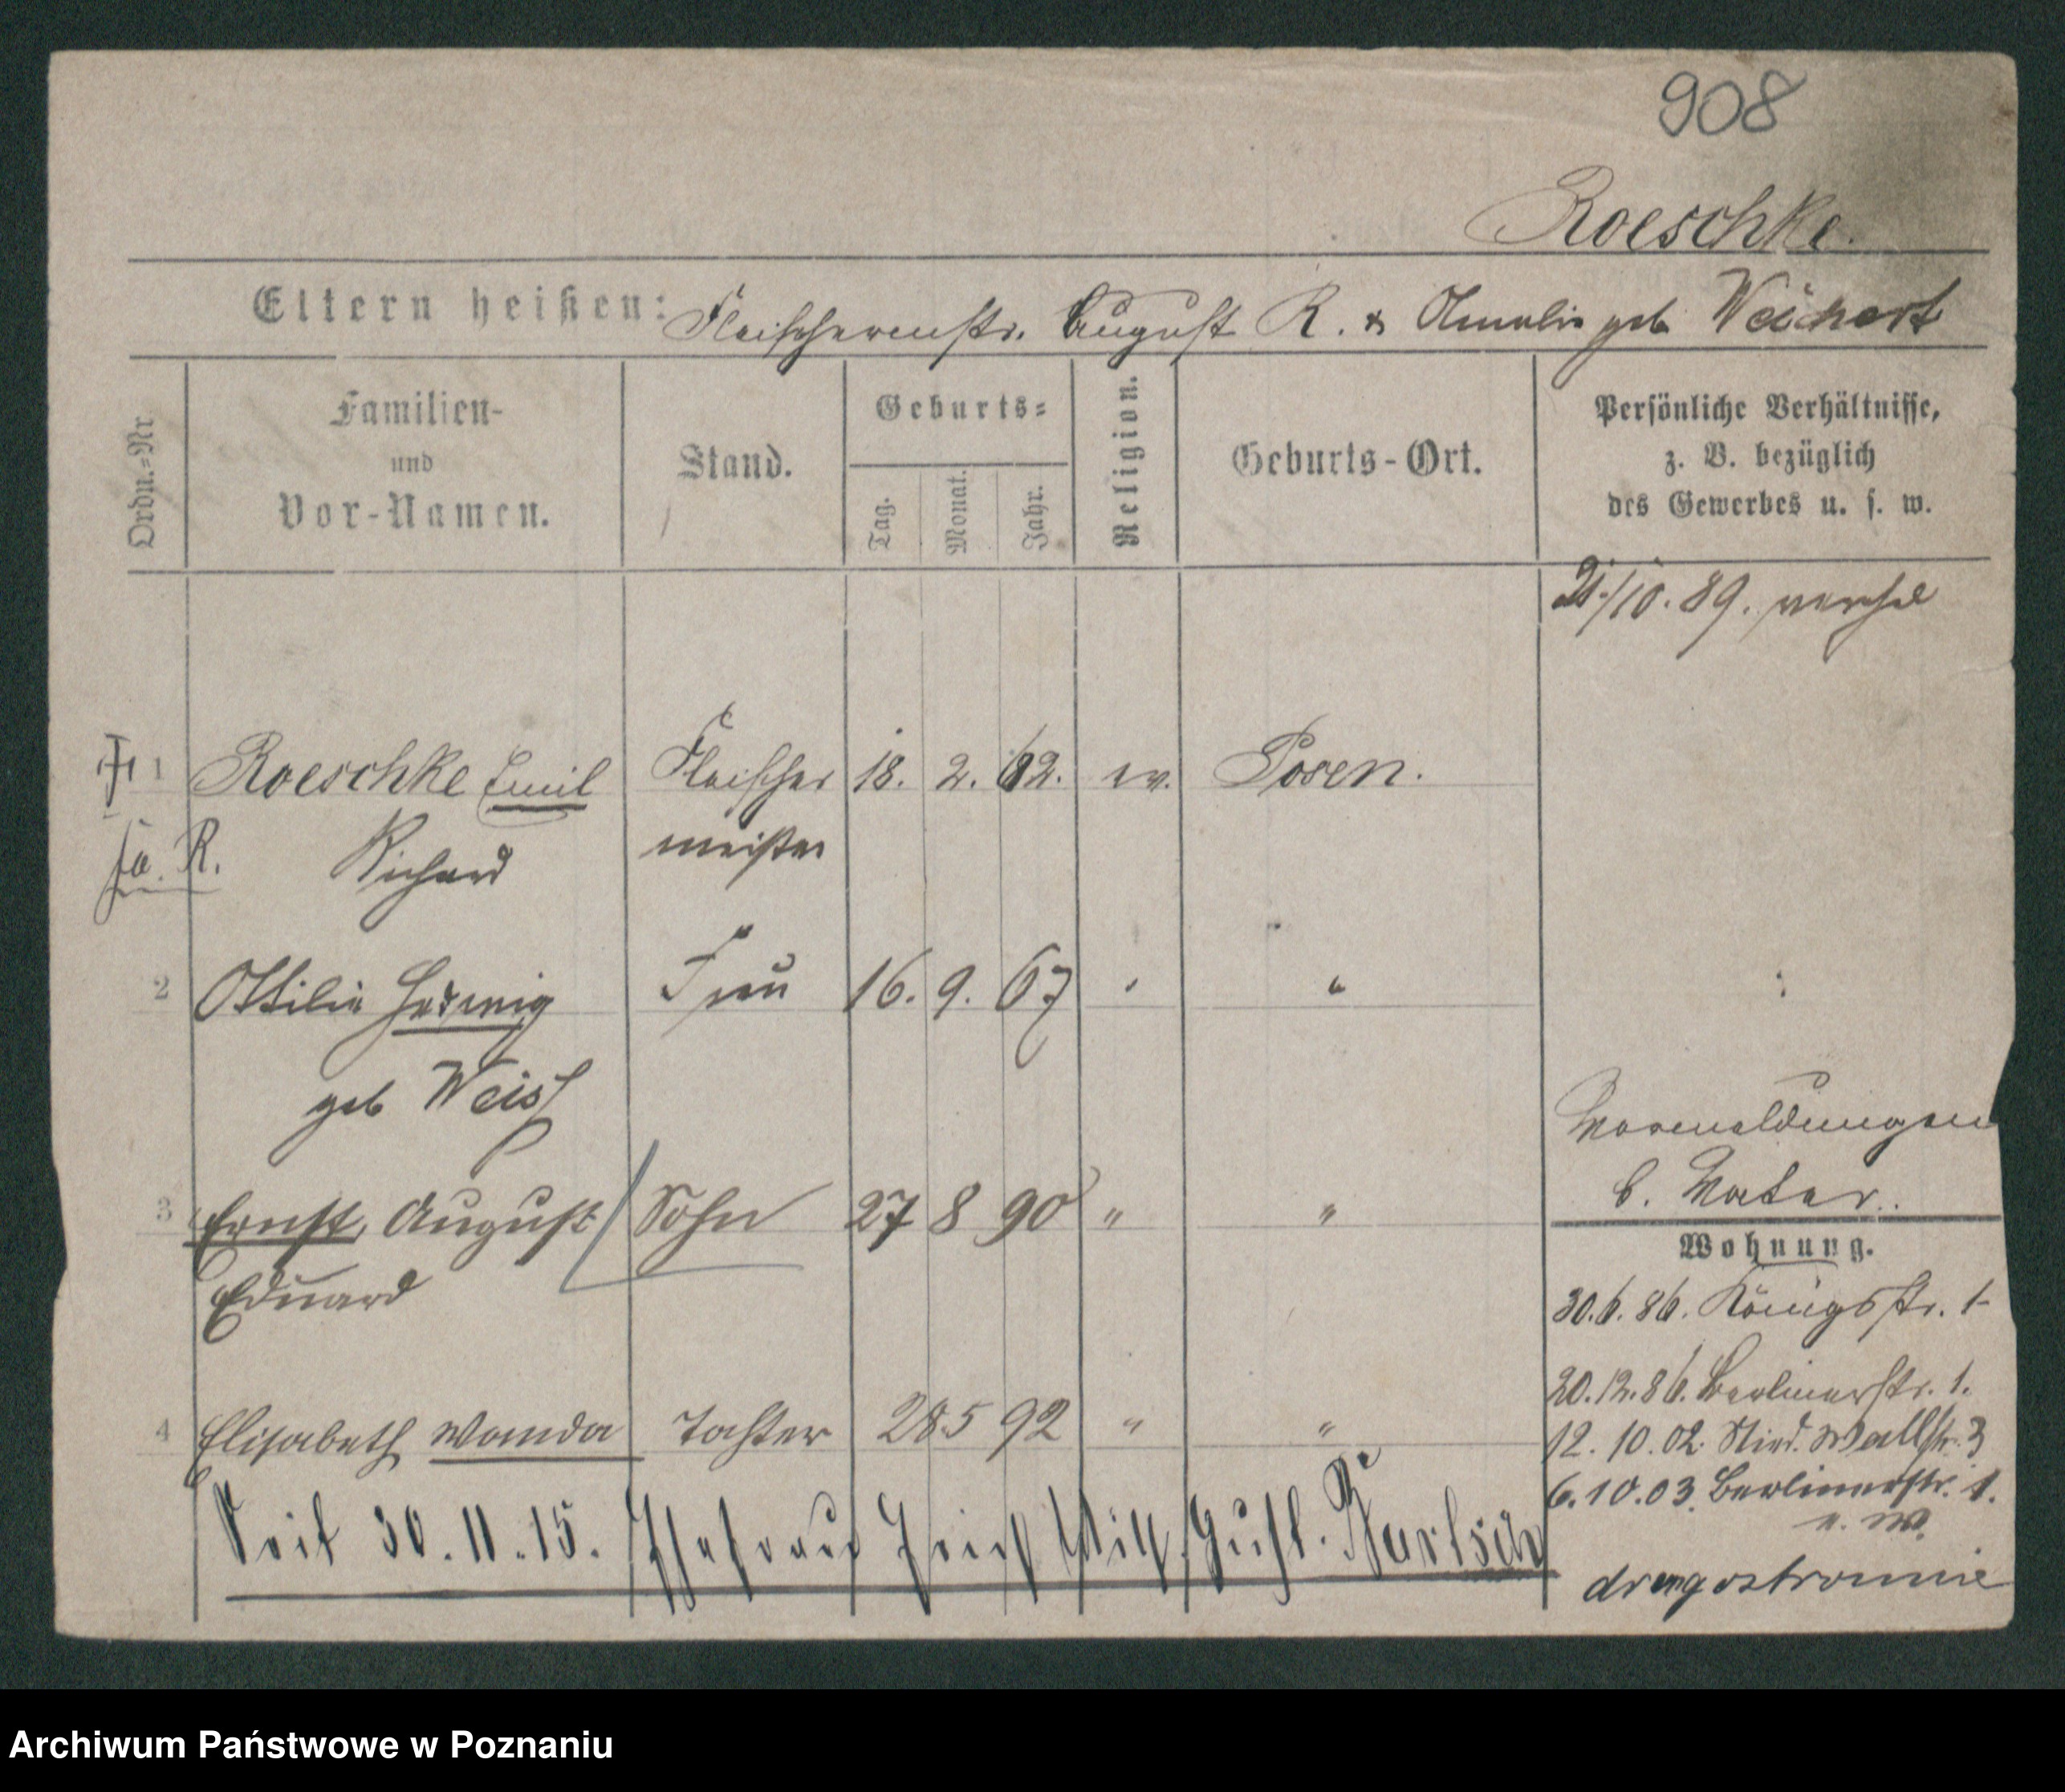 908
Roeschke.
Eltern heißen: Fleischermstr. August R. & Amalie geb Weichert
Ordn.=Nr
Familien-
und
Vor-Namen.
Stand.
Geburts=
Tag.
Monat.
Jahr.
Religion.
Geburts-Ort.
Persönliche Verhältnisse,
z. B. bezüglich
des Gewerbes u. s. w.
21/10.89.
1 Roeschke Emil Fleischer 18. 2. 62. ev. Posen.
R. Richard meister
2 Ottilie Hedwig Frau 16. 9. 67 " "
geb Weiß
Vormeldungen
b. Vater.
3 Ernst, August Sohn 27 8 90 " "
Eduard
Wohnung.
30.6.86. Königsstr. 1
20.12.86. Berlinerstr. 1.
4 Elisabeth Wanda Tochter 28 5 92 " "
12.10.02. Wallstr. 3
6.10.03. Berlinerstr. 1.
Seit 30.11.15. Ehefrau Bartsch